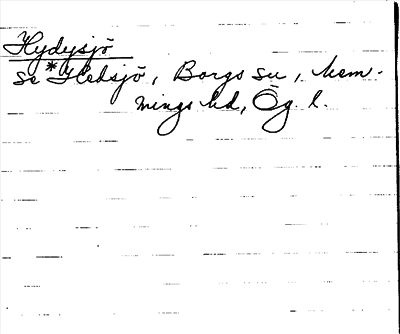 Hydysjö
se *Hedsjö, Borgs sn, Mem-
mings hd, Ög. l.